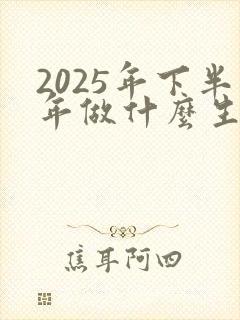 2025年下半
年做什麼生
焦耳阿四